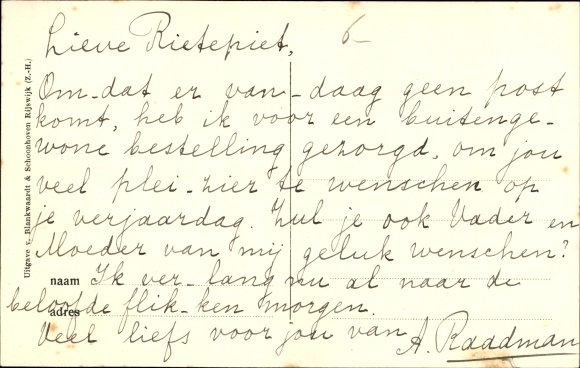 Lieve Rietepiet, 6-
Om-dat er van-daag geen post
komt, heb ik voor een buitenge-
wone bestelling gezorgd, om jou
veel plei-zier te wenschen op
je verjaardag. Zul je ook Vader en
Moeder van mij geluk wenschen?
naam Ik ver-lang nu al naar de
beloofde flik-ken morgen.
adres
Veel liefs voor jou van A. Raadman
Uitgave v. Blankwaardt & Schoonhoven Rijswijk (Z.-H.)